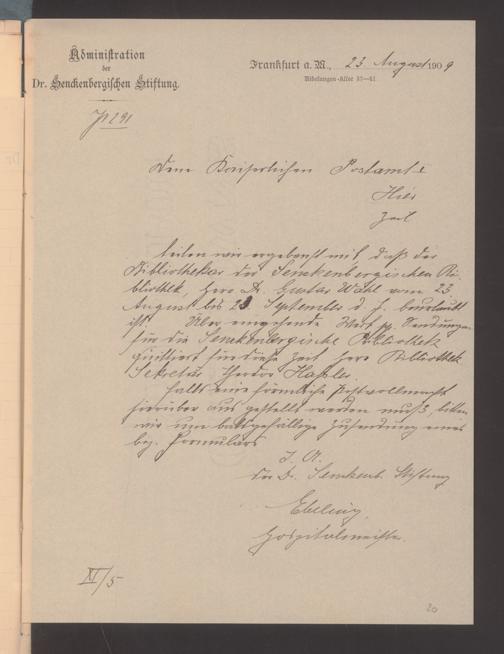 Administration
der
Dr. Senckenbergischen Stiftung.
Frankfurt a. M., 23 August 1909
Nibelungen-Allee 37–41
Dem Kaiserlichen Postamt
Hier
Zeil
teilen wir ergebenst mit, daß der
Bibliothekar der Senckenbergischen Bi-
bliothek, Herr Dr. Gustav Wahl vom 23
August bis 23 September d. J. beurlaubt
ist. Über eingehende Sendungen
für die Senckenbergische Bibliothek
quittiert für diese Zeit Herr Bibliothek
Sekretär Theodor
Falls eine förmliche Postvollmacht
hierüber ausgestellt werden muß, bitten
wir um baldgefällige Zusendung eines
bez. Formulars
I. A.
der Dr. Senckenb. Stiftung
Ebeling
Hospitalmeister.
XI/5
20